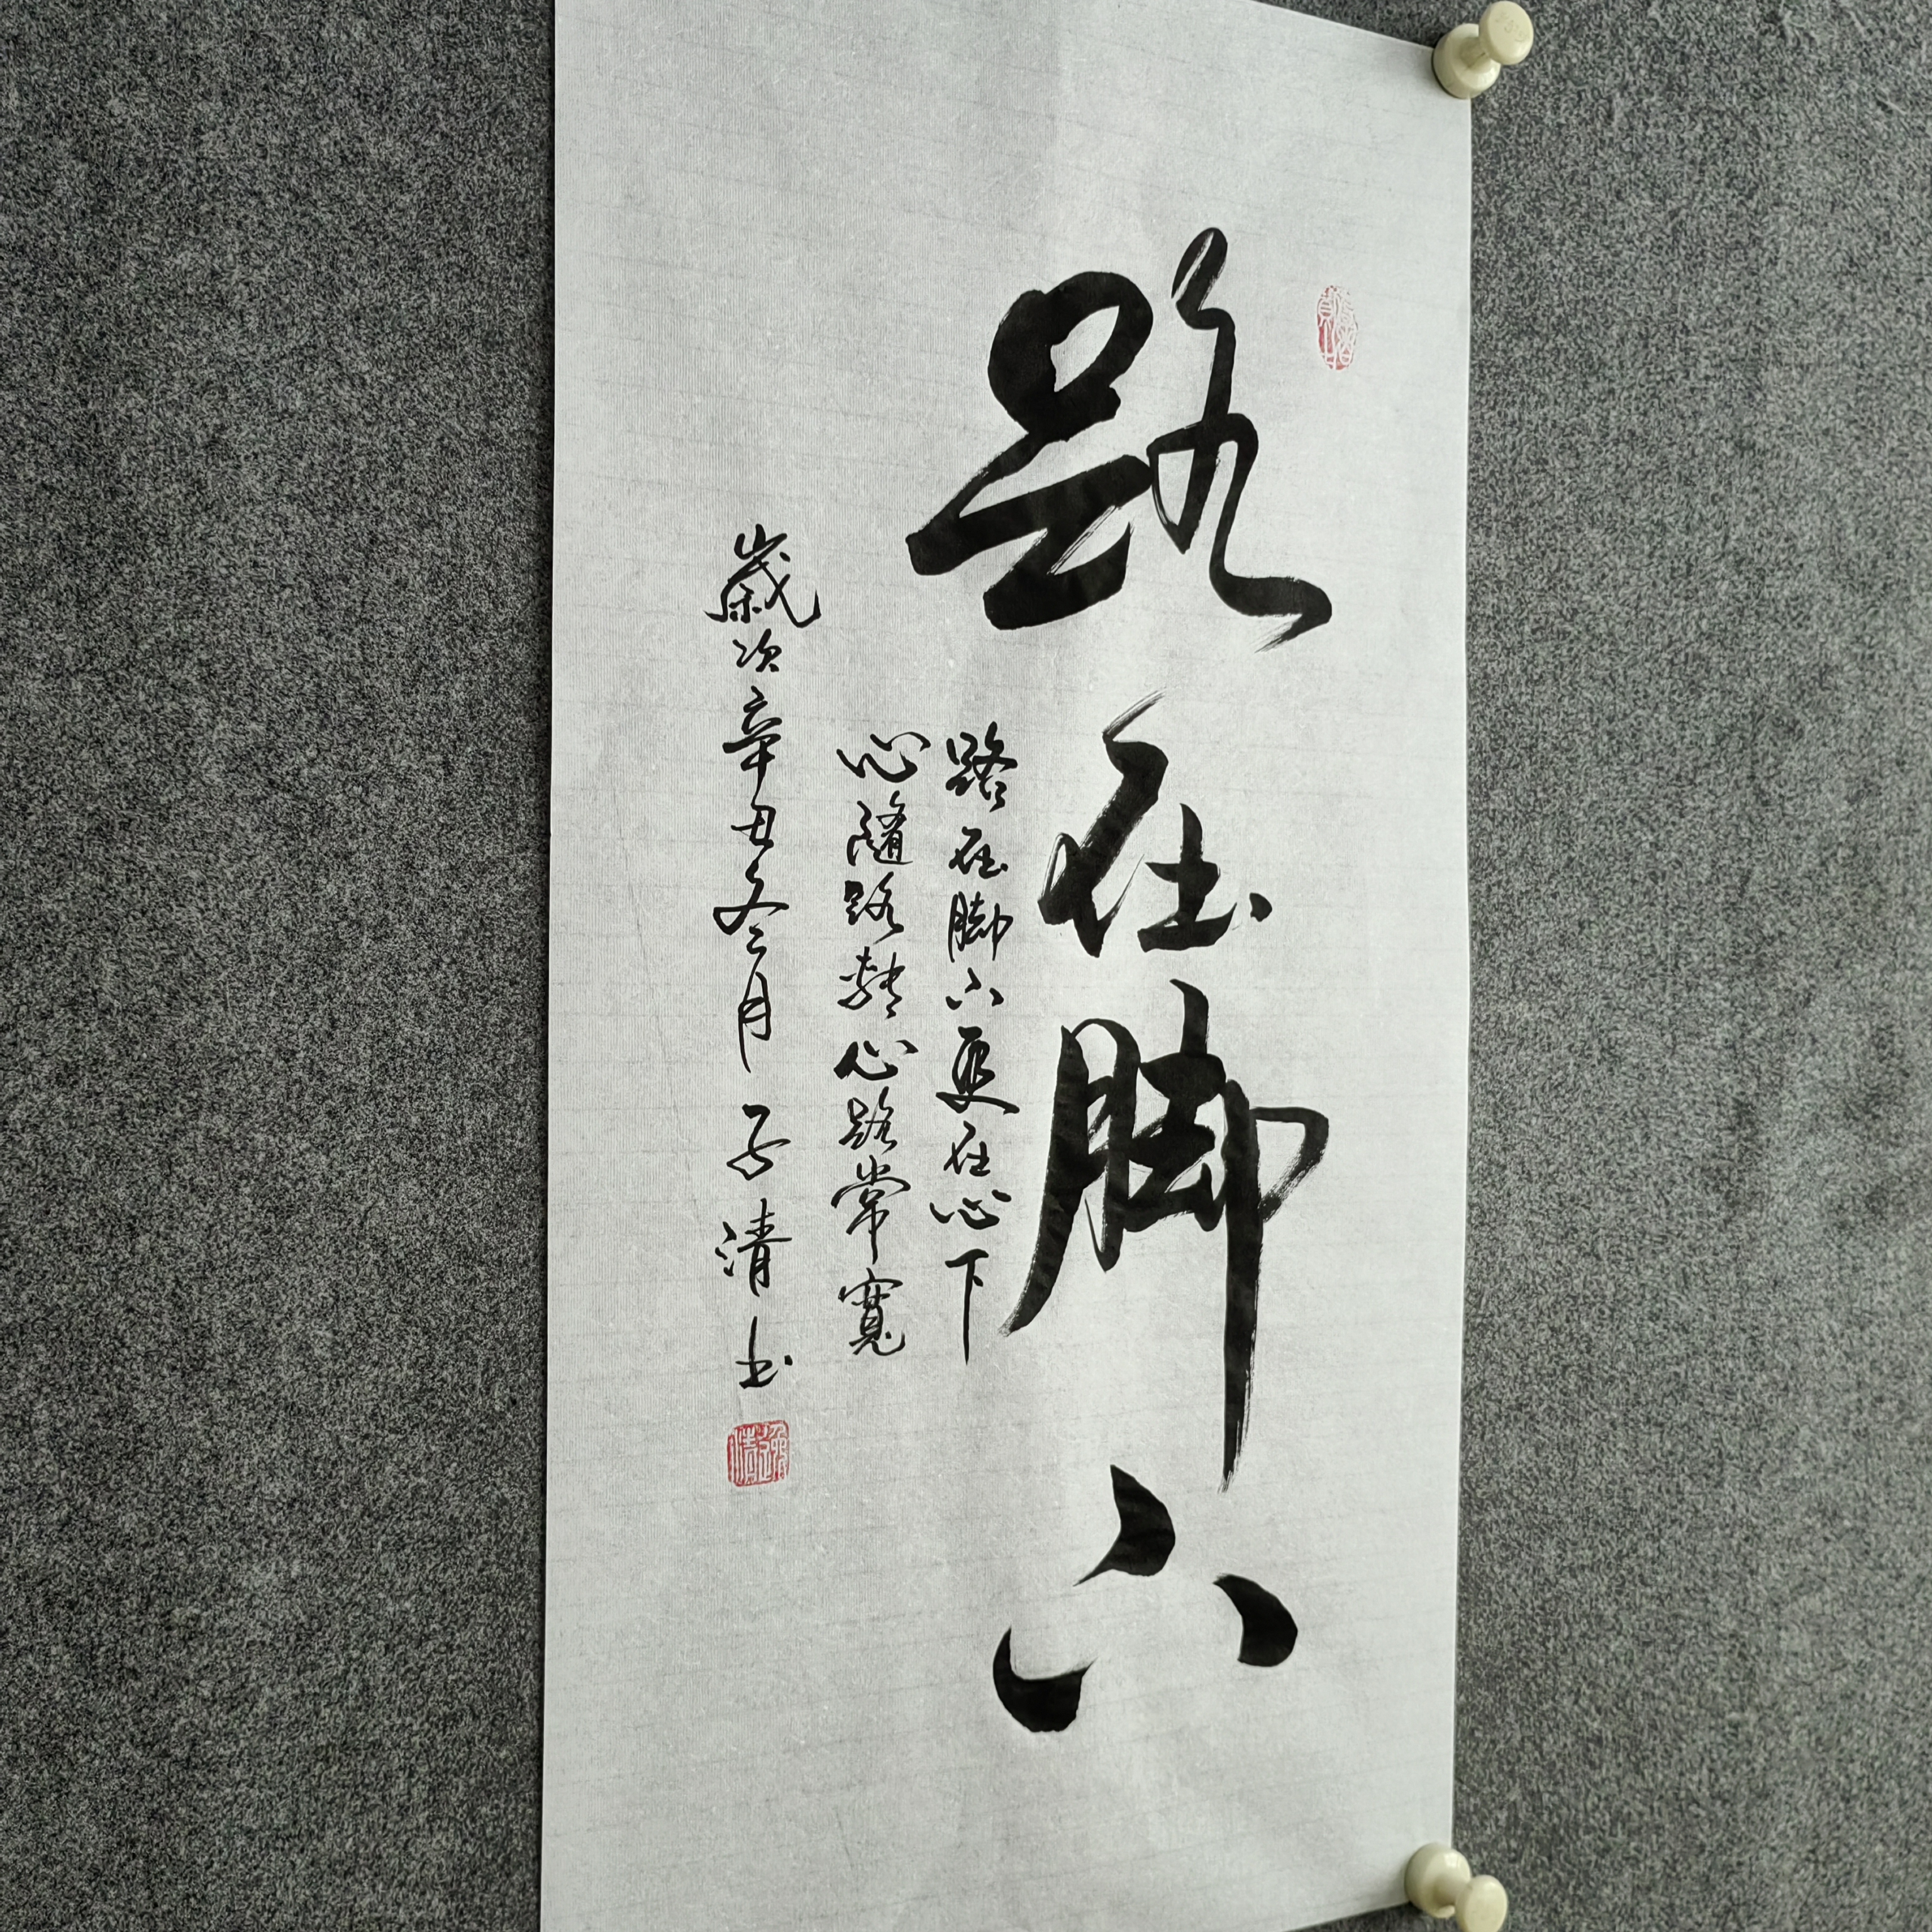 路在脚下
路在脚下更在心下
心隨路轉心路常寬
歲次辛丑冬月子清书